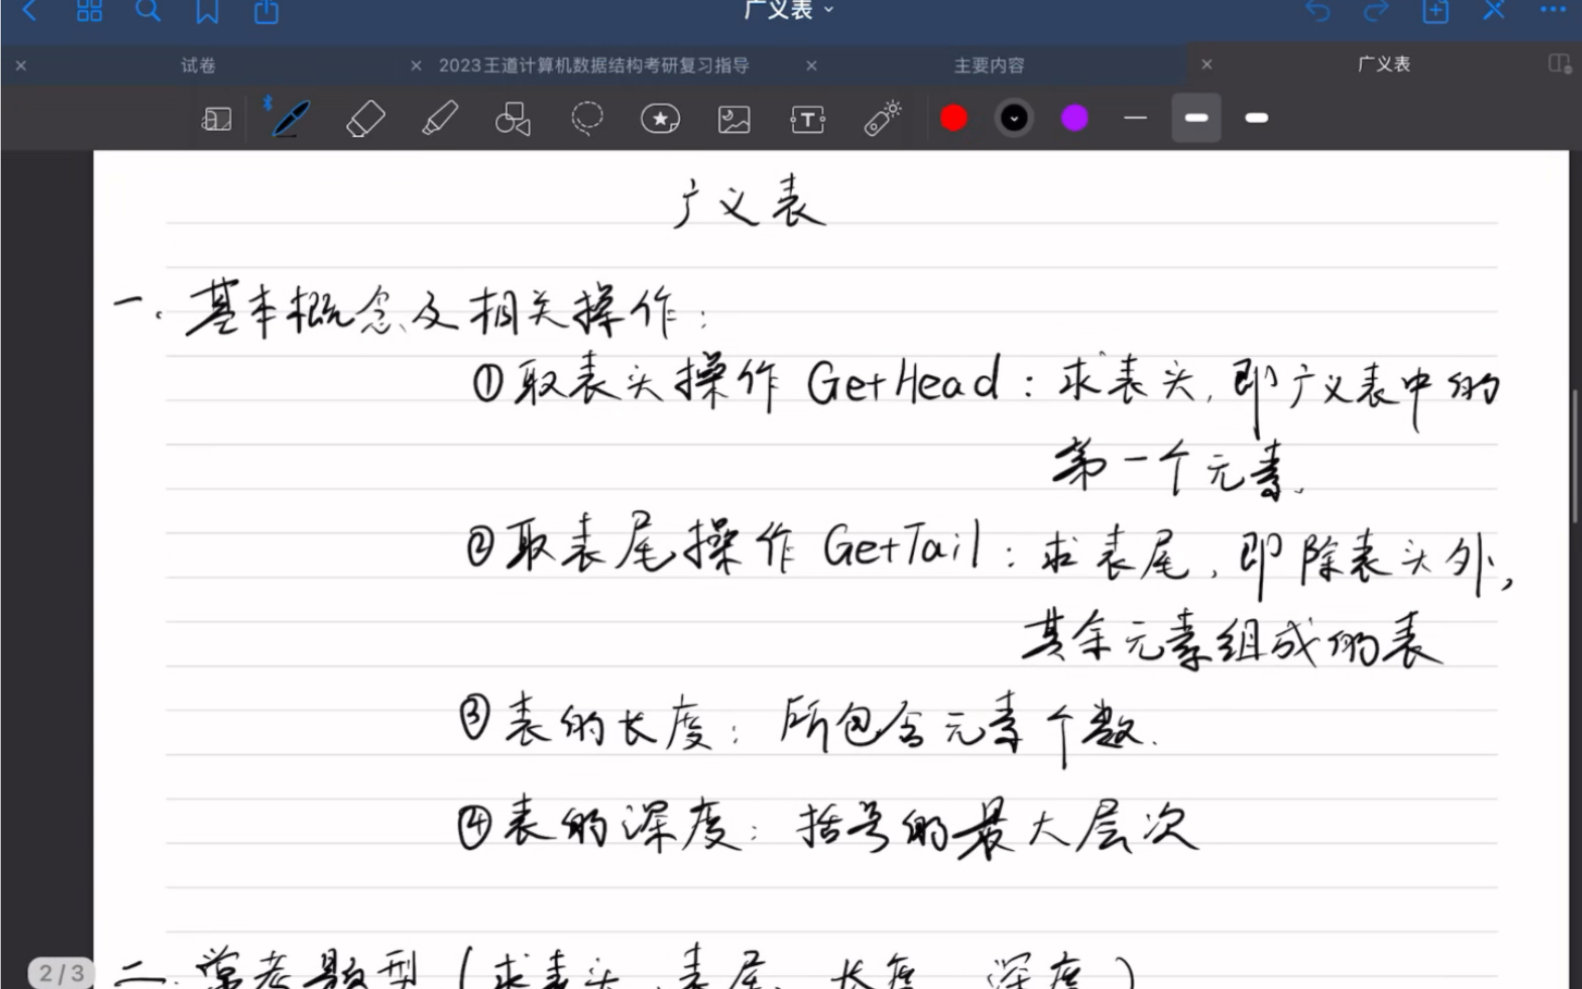 广义表
试卷
2023王道计算机数据结构考研复习指导
主要内容
广义表
广义表
一.基本概念及相关操作:
①取表头操作 GetHead:求表头,即广义表中的
第一个元素.
②取表尾操作 GetTail:求表尾,即除表头外,
其余元素组成的表
③表的长度:所包含元素个数.
④表的深度:括号的最大层次
2/3
二.常考题型(求表头、表尾、长度、深度)